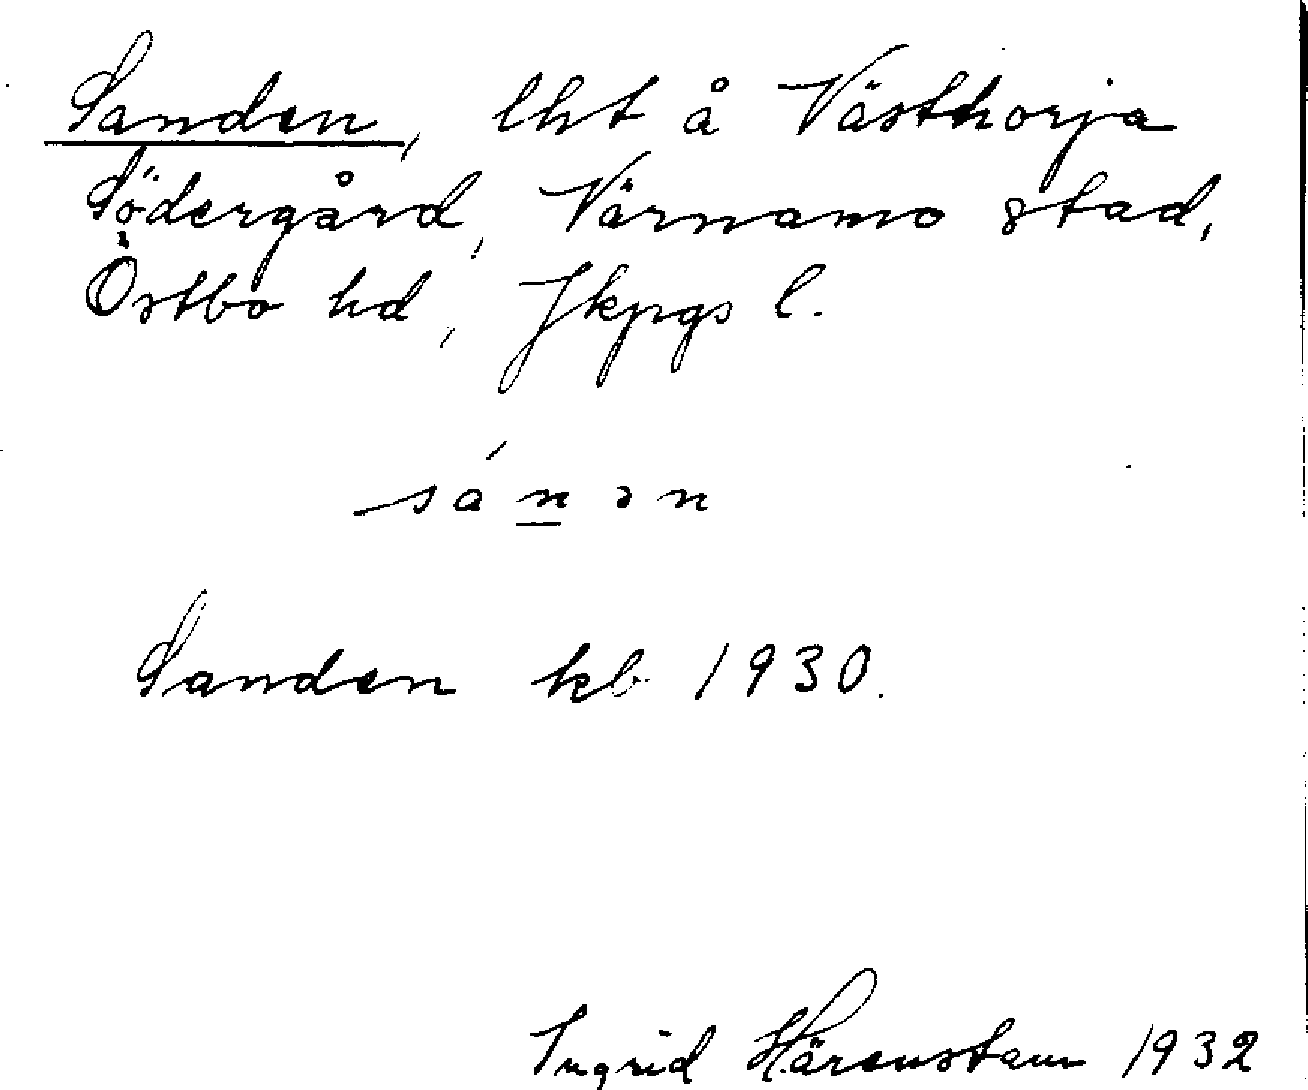 Sanden, lht å Västhorja
Södergård, Värnamo stad,
Östbo hd, Jkpgs l.
sánən
Sanden kb 1930.
Ingrid Härenstam 1932